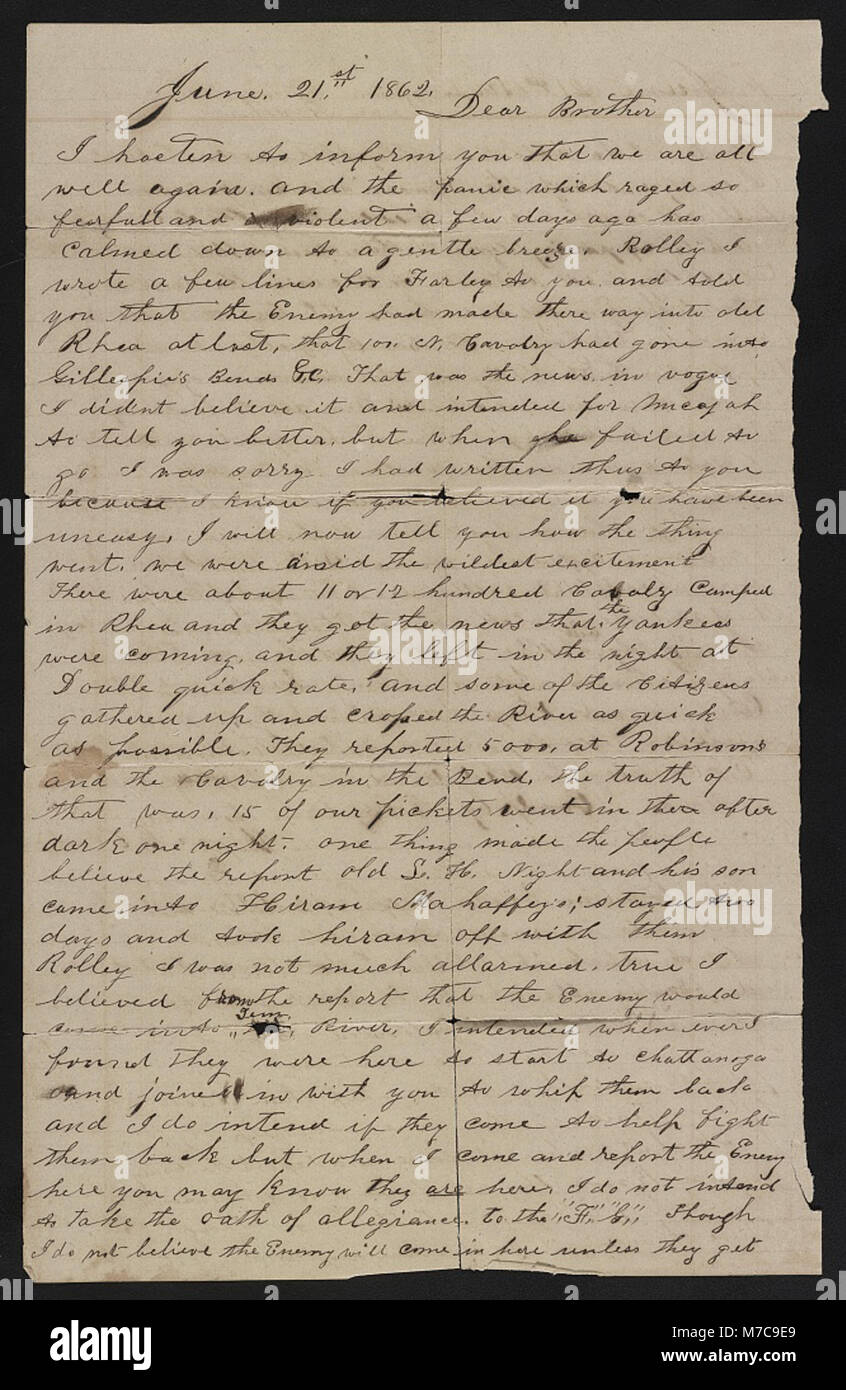 June. 21st 1862.
Dear Brother
I hasten to inform you that we are all
well again. and the panic which raged so
fearfull and violent a few days ago has
Calmed down to a gentle breeze. Rolley I
wrote a few lines for Farley to you and told
you that the Enemy had made there way into old
Rhea at last, that 100. N. Cavalry had gone into
Gillespie's Bends &C. That was the news in vogue
I didnt believe it and intended for Micajah
to tell you better, but when he failed to
go I was sorry I had written thus to you
because I know if you believed it you have been
uneasy. I will now tell you how the thing
went. we were amid the wildest excitement
There were about 11 or 12 hundred Cavalry Camped
in Rhea and they got the news that the Yankees
were coming, and they left in the night at
Double quick rate, and some of the Citizens
gathered up and crossed the River as quick
as possible. They reported 5000, at Robinsons
and the Cavalry in the Bend, the truth of
that was, 15 of our pickets went in there after
dark one night. one thing made the people
believe the report old S. H. Night and his son
came into Hiram Mahaffeys; stayed two
days and took hiram off with them
Rolley I was not much allarmed, true I
believed from the report that the Enemy would
come into Tenn. River, I intended when ever I
found they were here to start to Chattanoga
and joined in with you to whip them back
and I do intend if they come to help fight
them back but when I come and report the Enemy
here you may know they are here, I do not intend
to take the oath of allegiance. to the "F." C.," Though
I do not believe the Enemy will come in here unless they get
alamy
Image ID: M7C9E9
www.alamy.com